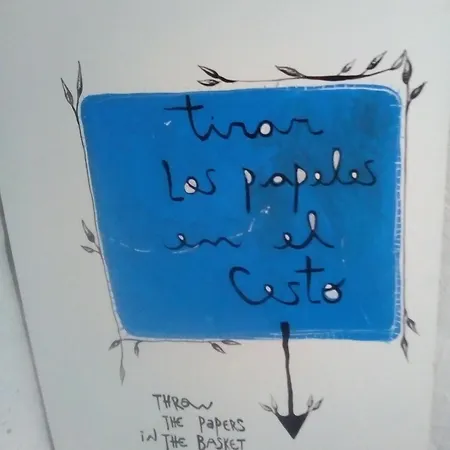 tirar
Los papeles
en el
Cesto
THROW
THE PAPERS
iN THE BASKET